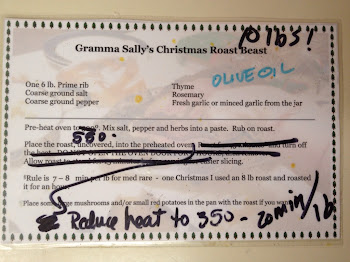 10 lbs!
Gramma Sally's Christmas Roast Beast
One 6 lb. Prime rib
Coarse ground salt
Coarse ground pepper
Thyme
Rosemary
Fresh garlic or minced garlic from the jar
OLIVE OIL
Pre-heat oven to 550. Mix salt, pepper and herbs into a paste. Rub on roast.
Place the roast, uncovered, into the preheated oven turn off
the heat. DO NOT OPEN THE OVEN
Allow roast to slicing.
*Rule is 7 – 8 min per lb for med rare - one Christmas I used an 8 lb roast and roasted
it for an hour
Place some large mushrooms and/or small red potatoes in the pan with the roast if you want
Reduce heat to 350 - 20 min/lb